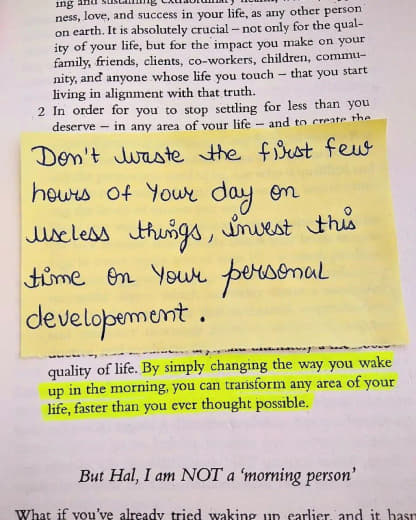 ing and sustaining extraordinary
ness, love, and success in your life, as any other person
on earth. It is absolutely crucial – not only for the qual-
ity of your life, but for the impact you make on your
family, friends, clients, co-workers, children, commu-
nity, and anyone whose life you touch – that you start
living in alignment with that truth.
2 In order for you to stop settling for less than you
deserve – in any area of your life – and to create the
Don't waste the first few
hours of Your day on
useless things, invest this
time on Your personal
developement.
quality of life. By simply changing the way you wake
up in the morning, you can transform any area of your
life, faster than you ever thought possible.
But Hal, I am NOT a 'morning person'
What if you've already tried waking up earlier, and it hasn